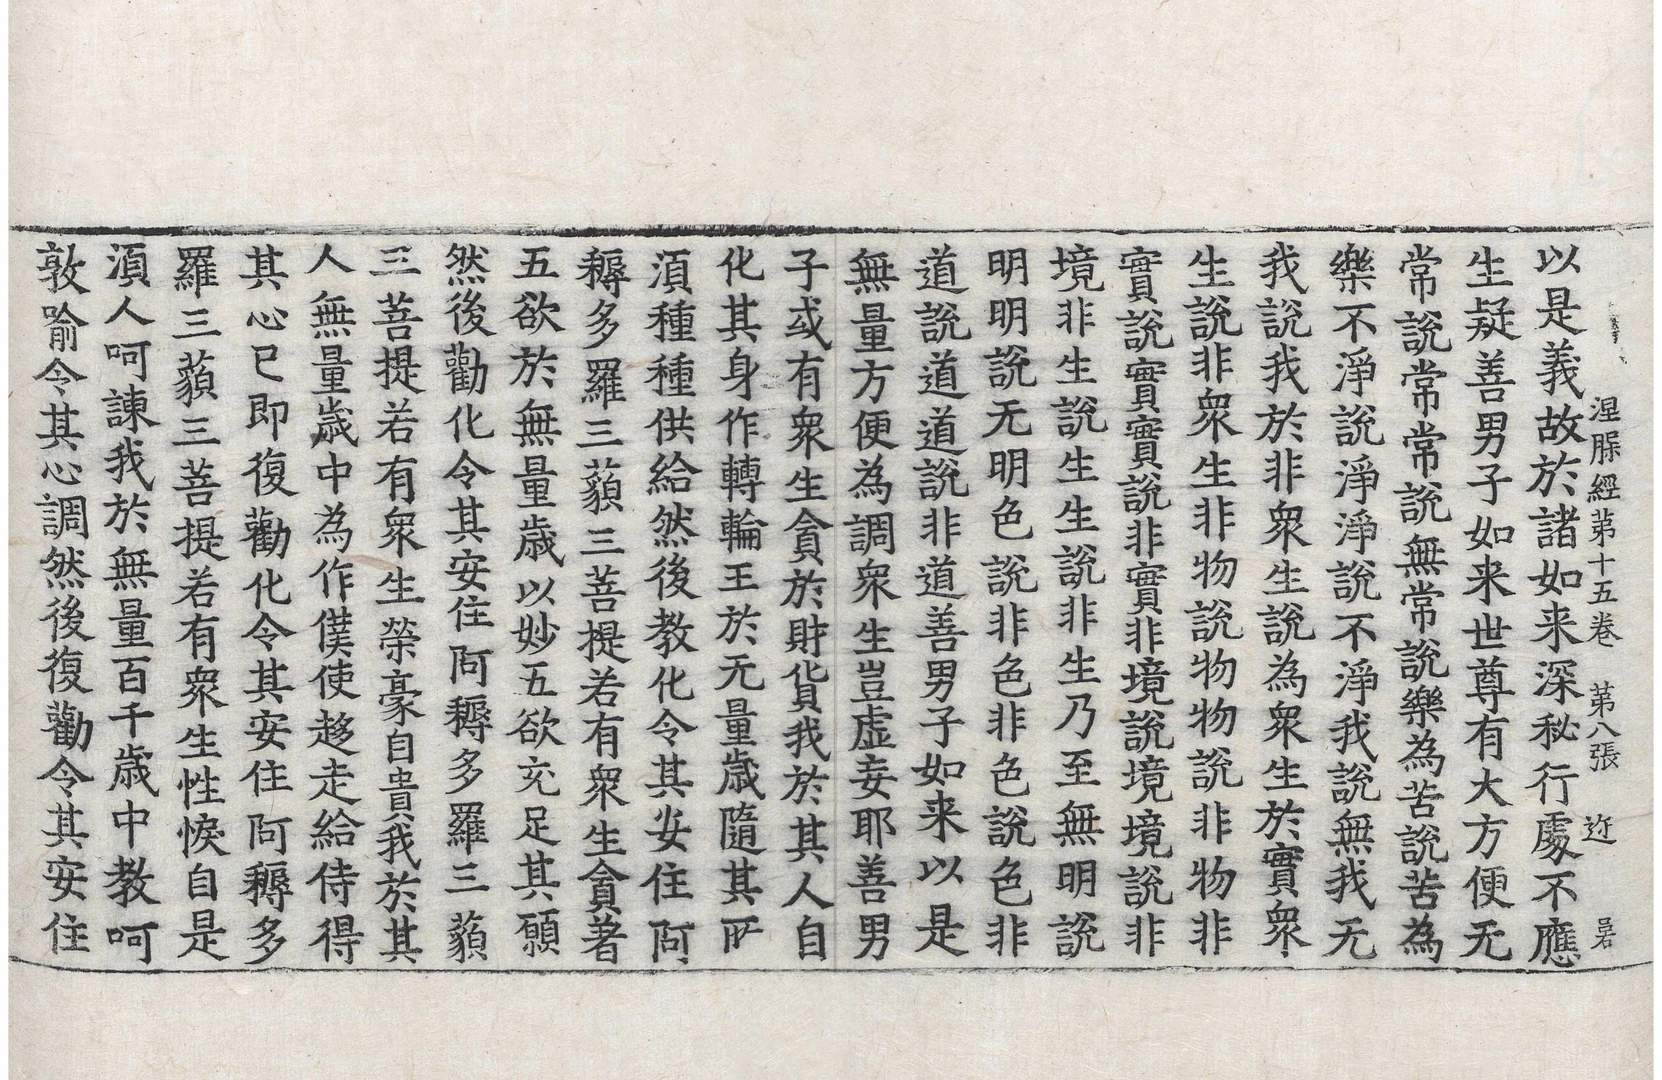 涅槃經第十五卷　第八張　迩　呂
以是義故於諸如来深秘行處不應
生疑善男子如来世尊有大方便无
常説常常説無常説樂為苦説苦為
樂不淨説淨淨説不淨我説無我无
我説我於非衆生説為衆生於實衆
生説非衆生非物説物物説非物非
實説實實説非實非境説境境説非
境非生説生生説非生乃至無明説
明明説无明色説非色非色説色非
道説道道説非道善男子如来以是
無量方便為調衆生豈虛妄耶善男
子或有衆生貪於財貨我於其人自
化其身作轉輪王於无量歳隨其所
湏種種供給然後教化令其安住阿
耨多羅三藐三菩提若有衆生貪著
五欲於無量歳以妙五欲充足其願
然後勸化令其安住阿耨多羅三藐
三菩提若有衆生榮豪自貴我於其
人無量歳中為作僕使趍走給侍得
其心已即復勸化令其安住阿耨多
羅三藐三菩提若有衆生性悷自是
湏人呵諫我於無量百千歳中教呵
敦喻令其心調然後復勸令其安住